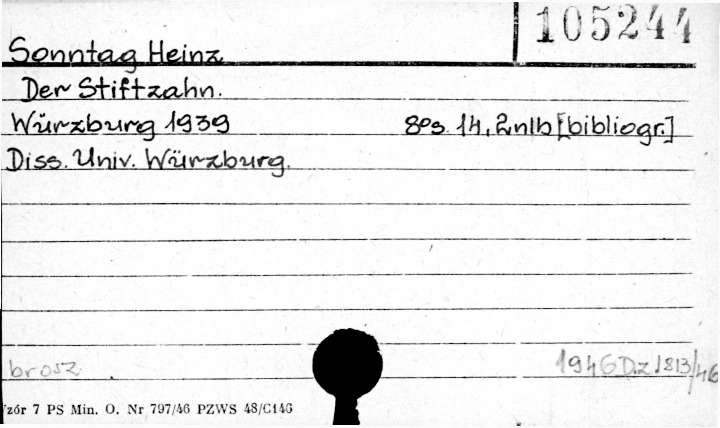 105244
Sonntag Heinz
Der Stiftzahn.
Würzburg 1939 8⁰ s. 14, 2 nlb [bibliogr.]
Diss. Univ. Würzburg.
brosz. 1946 D.z 1813/46
zór 7 PS Min. O. Nr 797/46 PZWS 48/C146